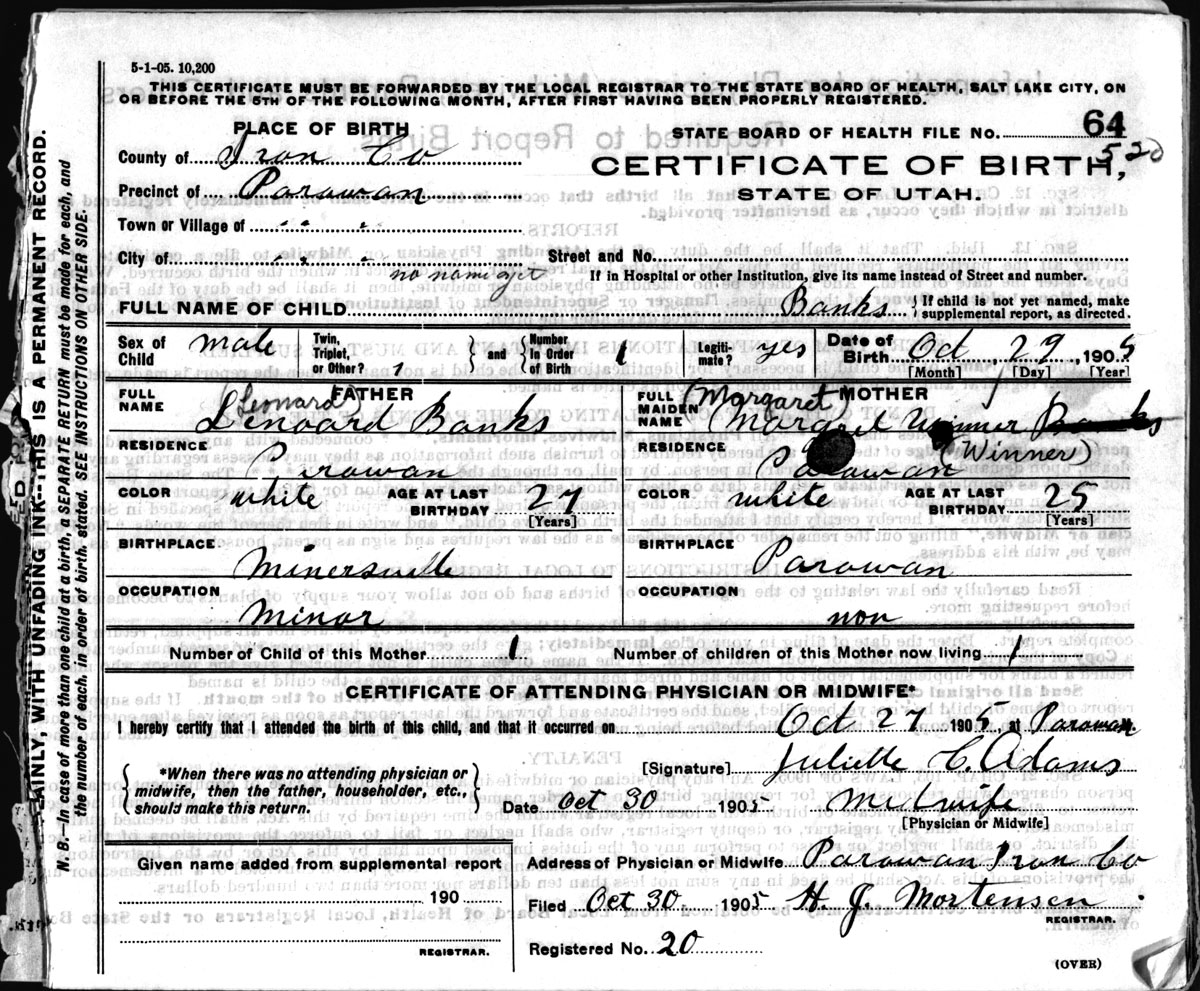 5-1-05. 10,200
THIS CERTIFICATE MUST BE FORWARDED BY THE LOCAL REGISTRAR TO THE STATE BOARD OF HEALTH, SALT LAKE CITY, ON
OR BEFORE THE 5TH OF THE FOLLOWING MONTH, AFTER FIRST HAVING BEEN PROPERLY REGISTERED.
PLACE OF BIRTH
STATE BOARD OF HEALTH FILE NO. 64
520
County of Iron Co
CERTIFICATE OF BIRTH,
Precinct of Parowan
STATE OF UTAH.
Town or Village of " "
City of " " Street and No.
no name yet
If in Hospital or other Institution, give its name insead of Street and number.
FULL NAME OF CHILD Banks { If child is not yet named, make supplemental report, as directed.
Sex of Child male Twin, Triplet, or Other? 1 } and { Number In Order of Birth 1 Legiti-mate? yes Date of Birth Oct 29, 1905
[Month] [Day] [Year]
FATHER
FULL NAME (Leonard) Lenoard Banks
MOTHER
FULL MAIDEN NAME (Margaret) Margret Winner Banks
(Winner)
RESIDENCE Parowan
RESIDENCE Parowan
COLOR white AGE AT LAST BIRTHDAY 27 [Years]
COLOR white AGE AT LAST BIRTHDAY 25 [Years]
BIRTHPLACE Minersville
BIRTHPLACE Parowan
OCCUPATION Minor
OCCUPATION non
Number of Child of this Mother 1 Number of children of this Mother now living 1
CERTIFICATE OF ATTENDING PHYSICIAN OR MIDWIFE*
I hereby certify that I attended the birth of this child, and that it occurred on Oct 27 1905, at Parowan
{ *When there was no attending physician or midwife, then the father, householder, etc., should make this return. }
[Signature] Juliette C. Adams
Date Oct 30 1905 Midwife
[Physician or Midwife]
Given name added from supplemental report
190
REGISTRAR.
Address of Physician or Midwife Parowan Iron Co
Filed Oct 30 1905 H. J. Mortensen
REGISTRAR.
Registered No. 20
(OVER)
PLAINLY, WITH UNFADING INK—THIS IS A PERMANENT RECORD.
N. B.—In case of more than one child at a birth, a SEPARATE RETURN must be made for each, and
the number of each, in order of birth, stated. SEE INSTRUCTIONS ON OTHER SIDE.